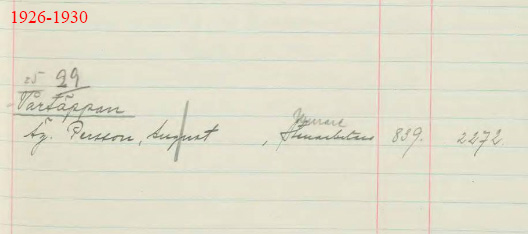 1926-1930
25 29
Vårtäppan
Äg. Persson, August , Stenarbetare 839. 2272